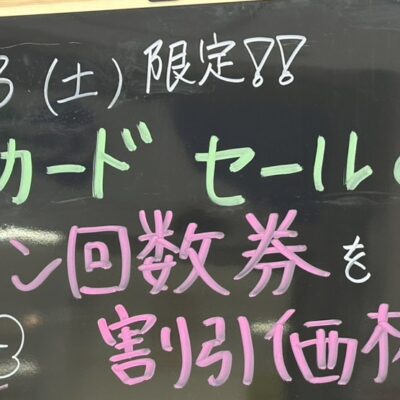 3(土)限定!!
カード セール
ン回数券を
割引価格